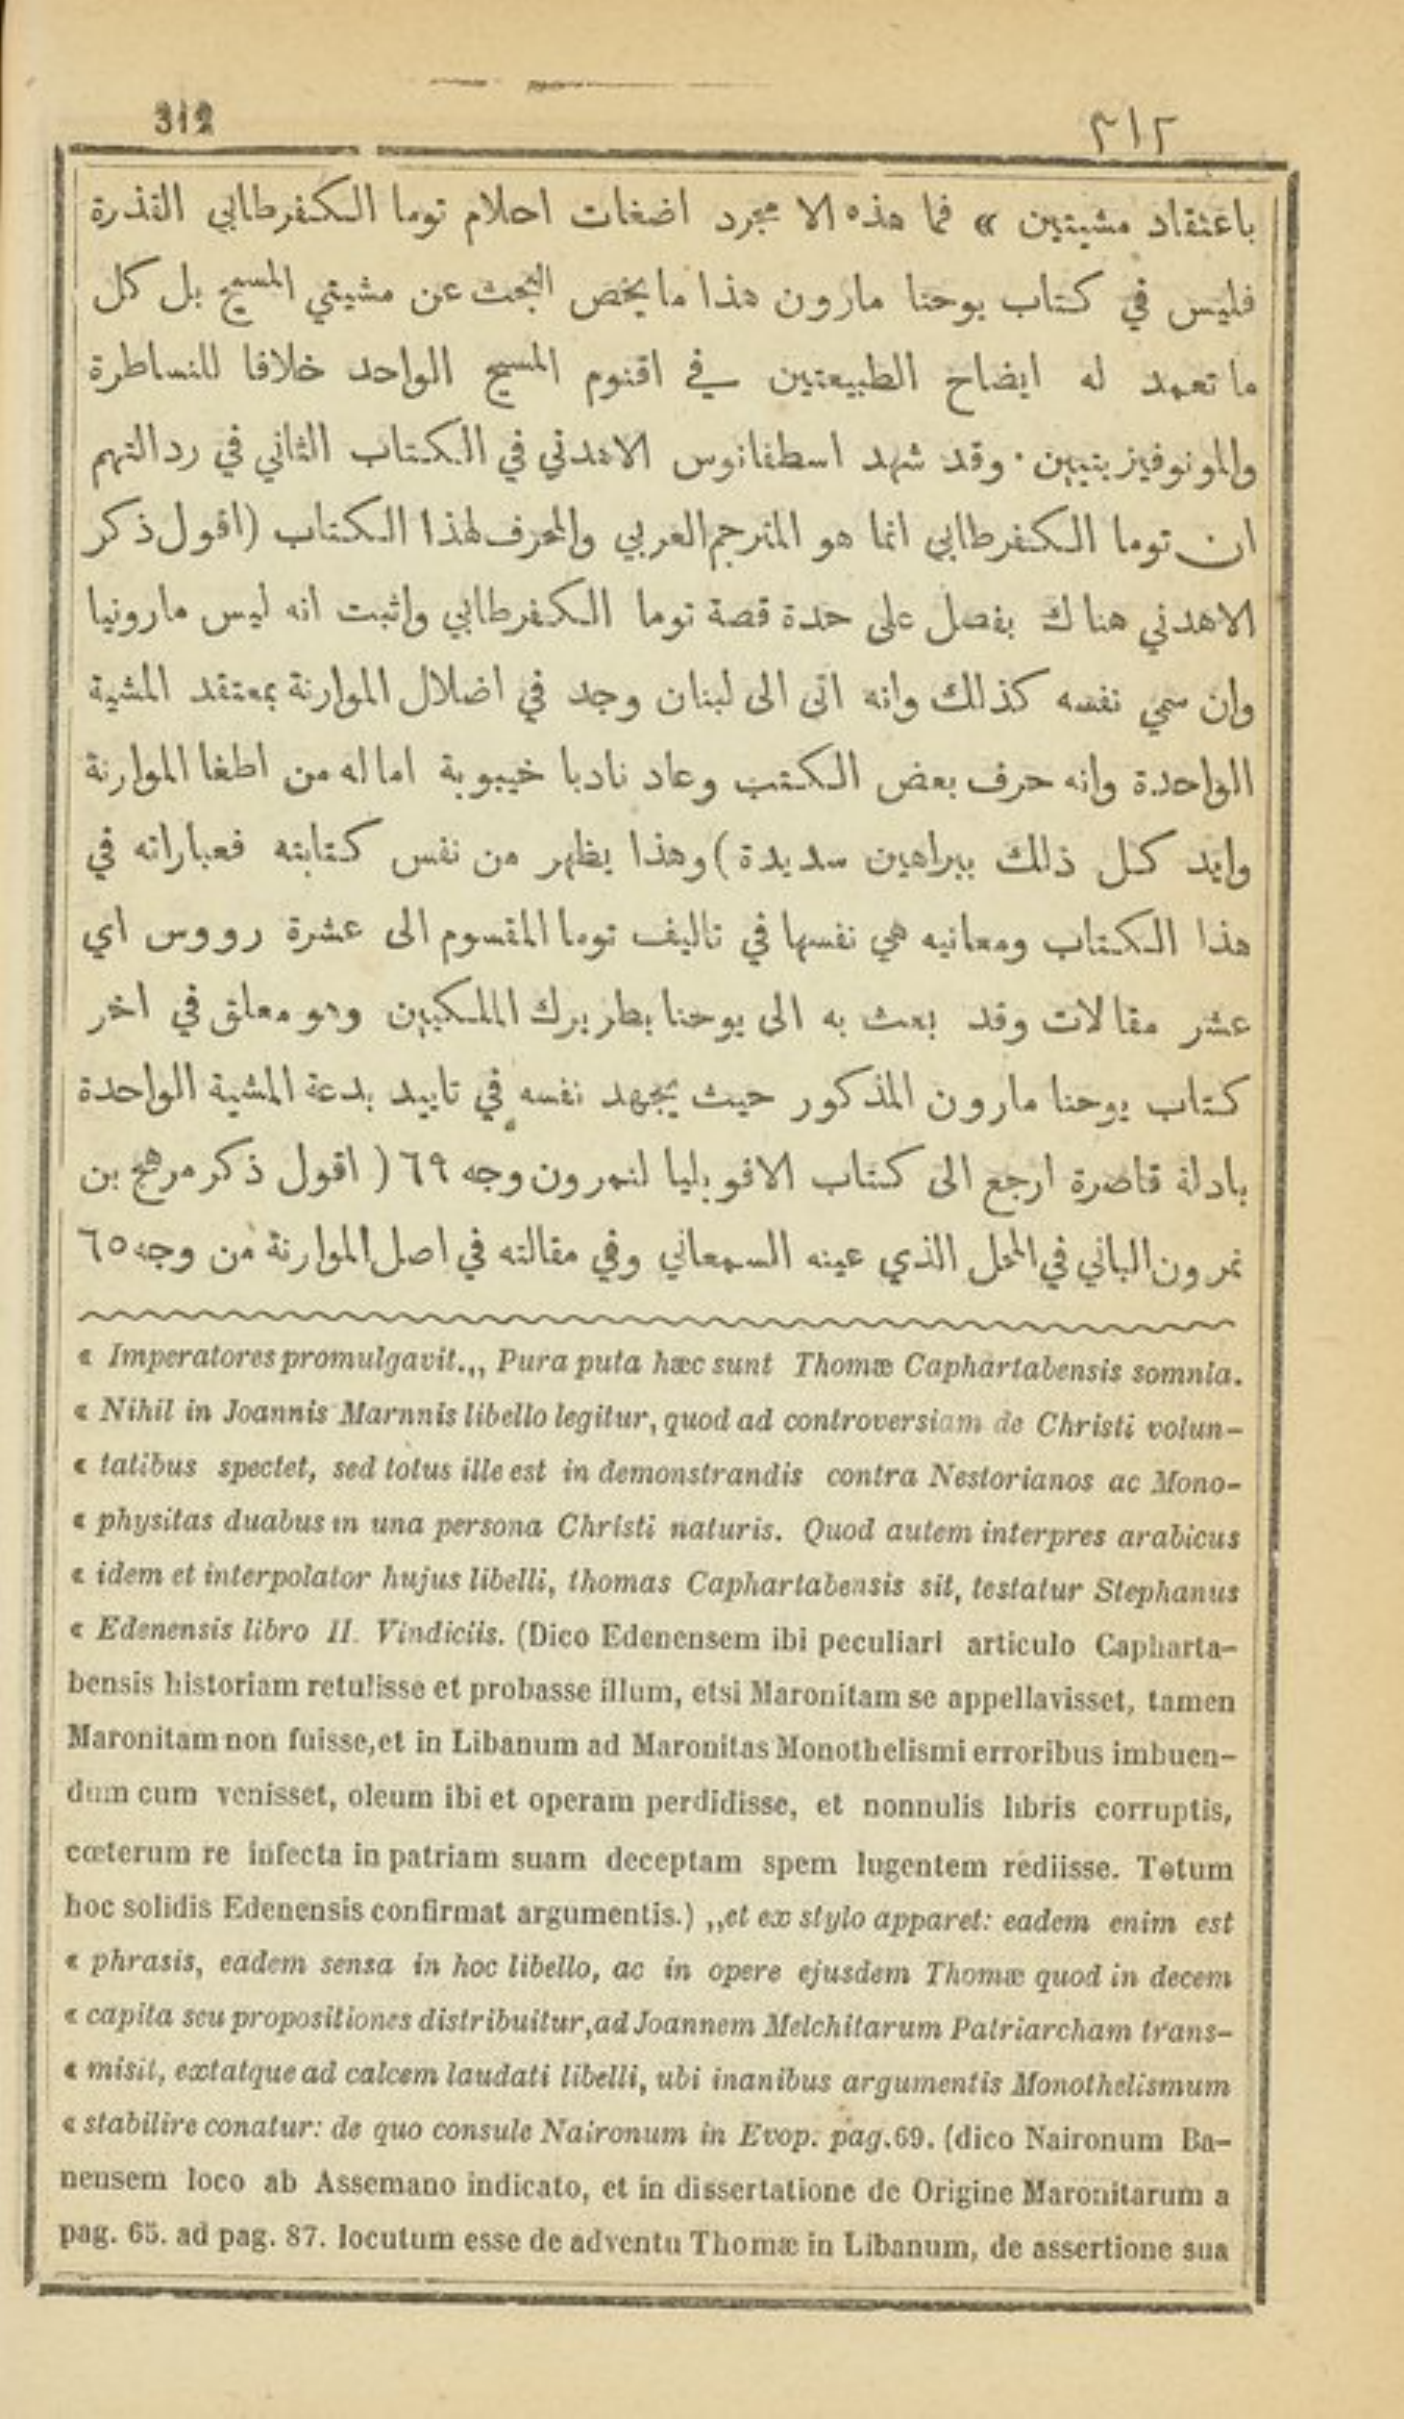 312
٣١٢
باعتقاد مشيتين » فما هذه الا مجرد اضغات احلام توما الكفرطابي القذرة
فليس في كتاب يوحنا مارون هذا ما يخص البحث عن مشيتي المسيح بل كل
ما تعمد له ايضاح الطبيعتين في اقنوم المسيح الواحد خلافا للنساطرة
والمونوفيزيتيين . وقد شهد اسطفانوس الاهدني في الكتاب الثاني في رد التهم
ان توما الكفرطابي انما هو المترجم العربي والمحرف لهذا الكتاب (اقول ذكر
الاهدني هناك بفصل على حدة قصة توما الكفرطابي واثبت انه ليس مارونيا
وان سمي نفسه كذلك وانه اتى الى لبنان وجد في اضلال الموارنة بمعتقد المشية
الواحدة وانه حرف بعض الكتب وعاد نادبا خيبوبة اماله من اطغا الموارنة
وايد كل ذلك ببراهين سديدة) وهذا يظهر من نفس كتابته فعباراته في
هذا الكتاب ومعانيه هي نفسها في تاليف توما المقسوم الى عشرة رووس اي
عشر مقالات وقد بعث به الى يوحنا بطريرك الملكيين وهو معلق في اخر
كتاب يوحنا مارون المذكور حيث يجهد نفسه في تاييد بدعة المشية الواحدة
بادلة قاصرة ارجع الى كتاب الافوبليا لنمرون وجه ٦٩ ( اقول ذكر مرهج بن
نمرون الباني في المحل الذي عينه السمعاني وفي مقالته في اصل الموارنة من وجه ٦٥
« Imperatores promulgavit.,, Pura puta hæc sunt Thomæ Caphartabensis somnia.
« Nihil in Joannis Marnnis libello legitur, quod ad controversiam de Christi volun-
« tatibus spectet, sed totus ille est in demonstrandis contra Nestorianos ac Mono-
« physitas duabus in una persona Christi naturis. Quod autem interpres arabicus
« idem et interpolator hujus libelli, thomas Caphartabensis sit, testatur Stephanus
« Edenensis libro II. Vindiciis. (Dico Edenensem ibi peculiari articulo Capharta-
bensis historiam retulisse et probasse illum, etsi Maronitam se appellavisset, tamen
Maronitam non fuisse, et in Libanum ad Maronitas Monothelismi erroribus imbuen-
dum cum venisset, oleum ibi et operam perdidisse, et nonnulis libris corruptis,
cœterum re infecta in patriam suam deceptam spem lugentem rediisse. Totum
hoc solidis Edenensis confirmat argumentis.) ,,et ex stylo apparet: eadem enim est
« phrasis, eadem sensa in hoc libello, ac in opere ejusdem Thomæ quod in decem
« capita seu propositiones distribuitur, ad Joannem Melchitarum Patriarcham trans-
« misit, extatque ad calcem laudati libelli, ubi inanibus argumentis Monothelismum
« stabilire conatur: de quo consule Naironum in Evop. pag. 69. (dico Naironum Ba-
nensem loco ab Assemano indicato, et in dissertatione de Origine Maronitarum a
pag. 65. ad pag. 87. locutum esse de adventu Thomæ in Libanum, de assertione sua